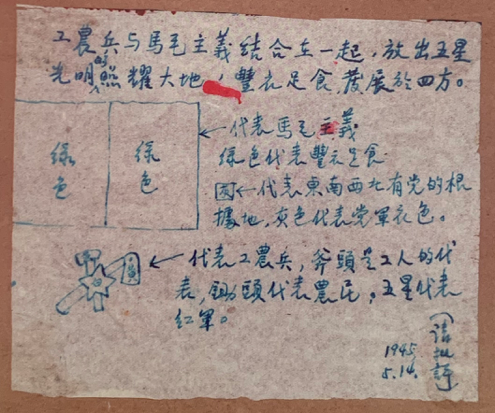 工農兵与馬毛主義結合在一起，放出五星
光明的照耀大地，豐衣足食，發展於四方。
綠色
綠色
←代表馬毛主義
綠色代表豐衣足食
圓←代表東南西北有党的根
據地，灰色代表党軍衣色。
←代表工農兵，斧頭是工人的代
表，鋤頭代表農民。五星代表
紅軍。
（請批評）
1945.
5.14.